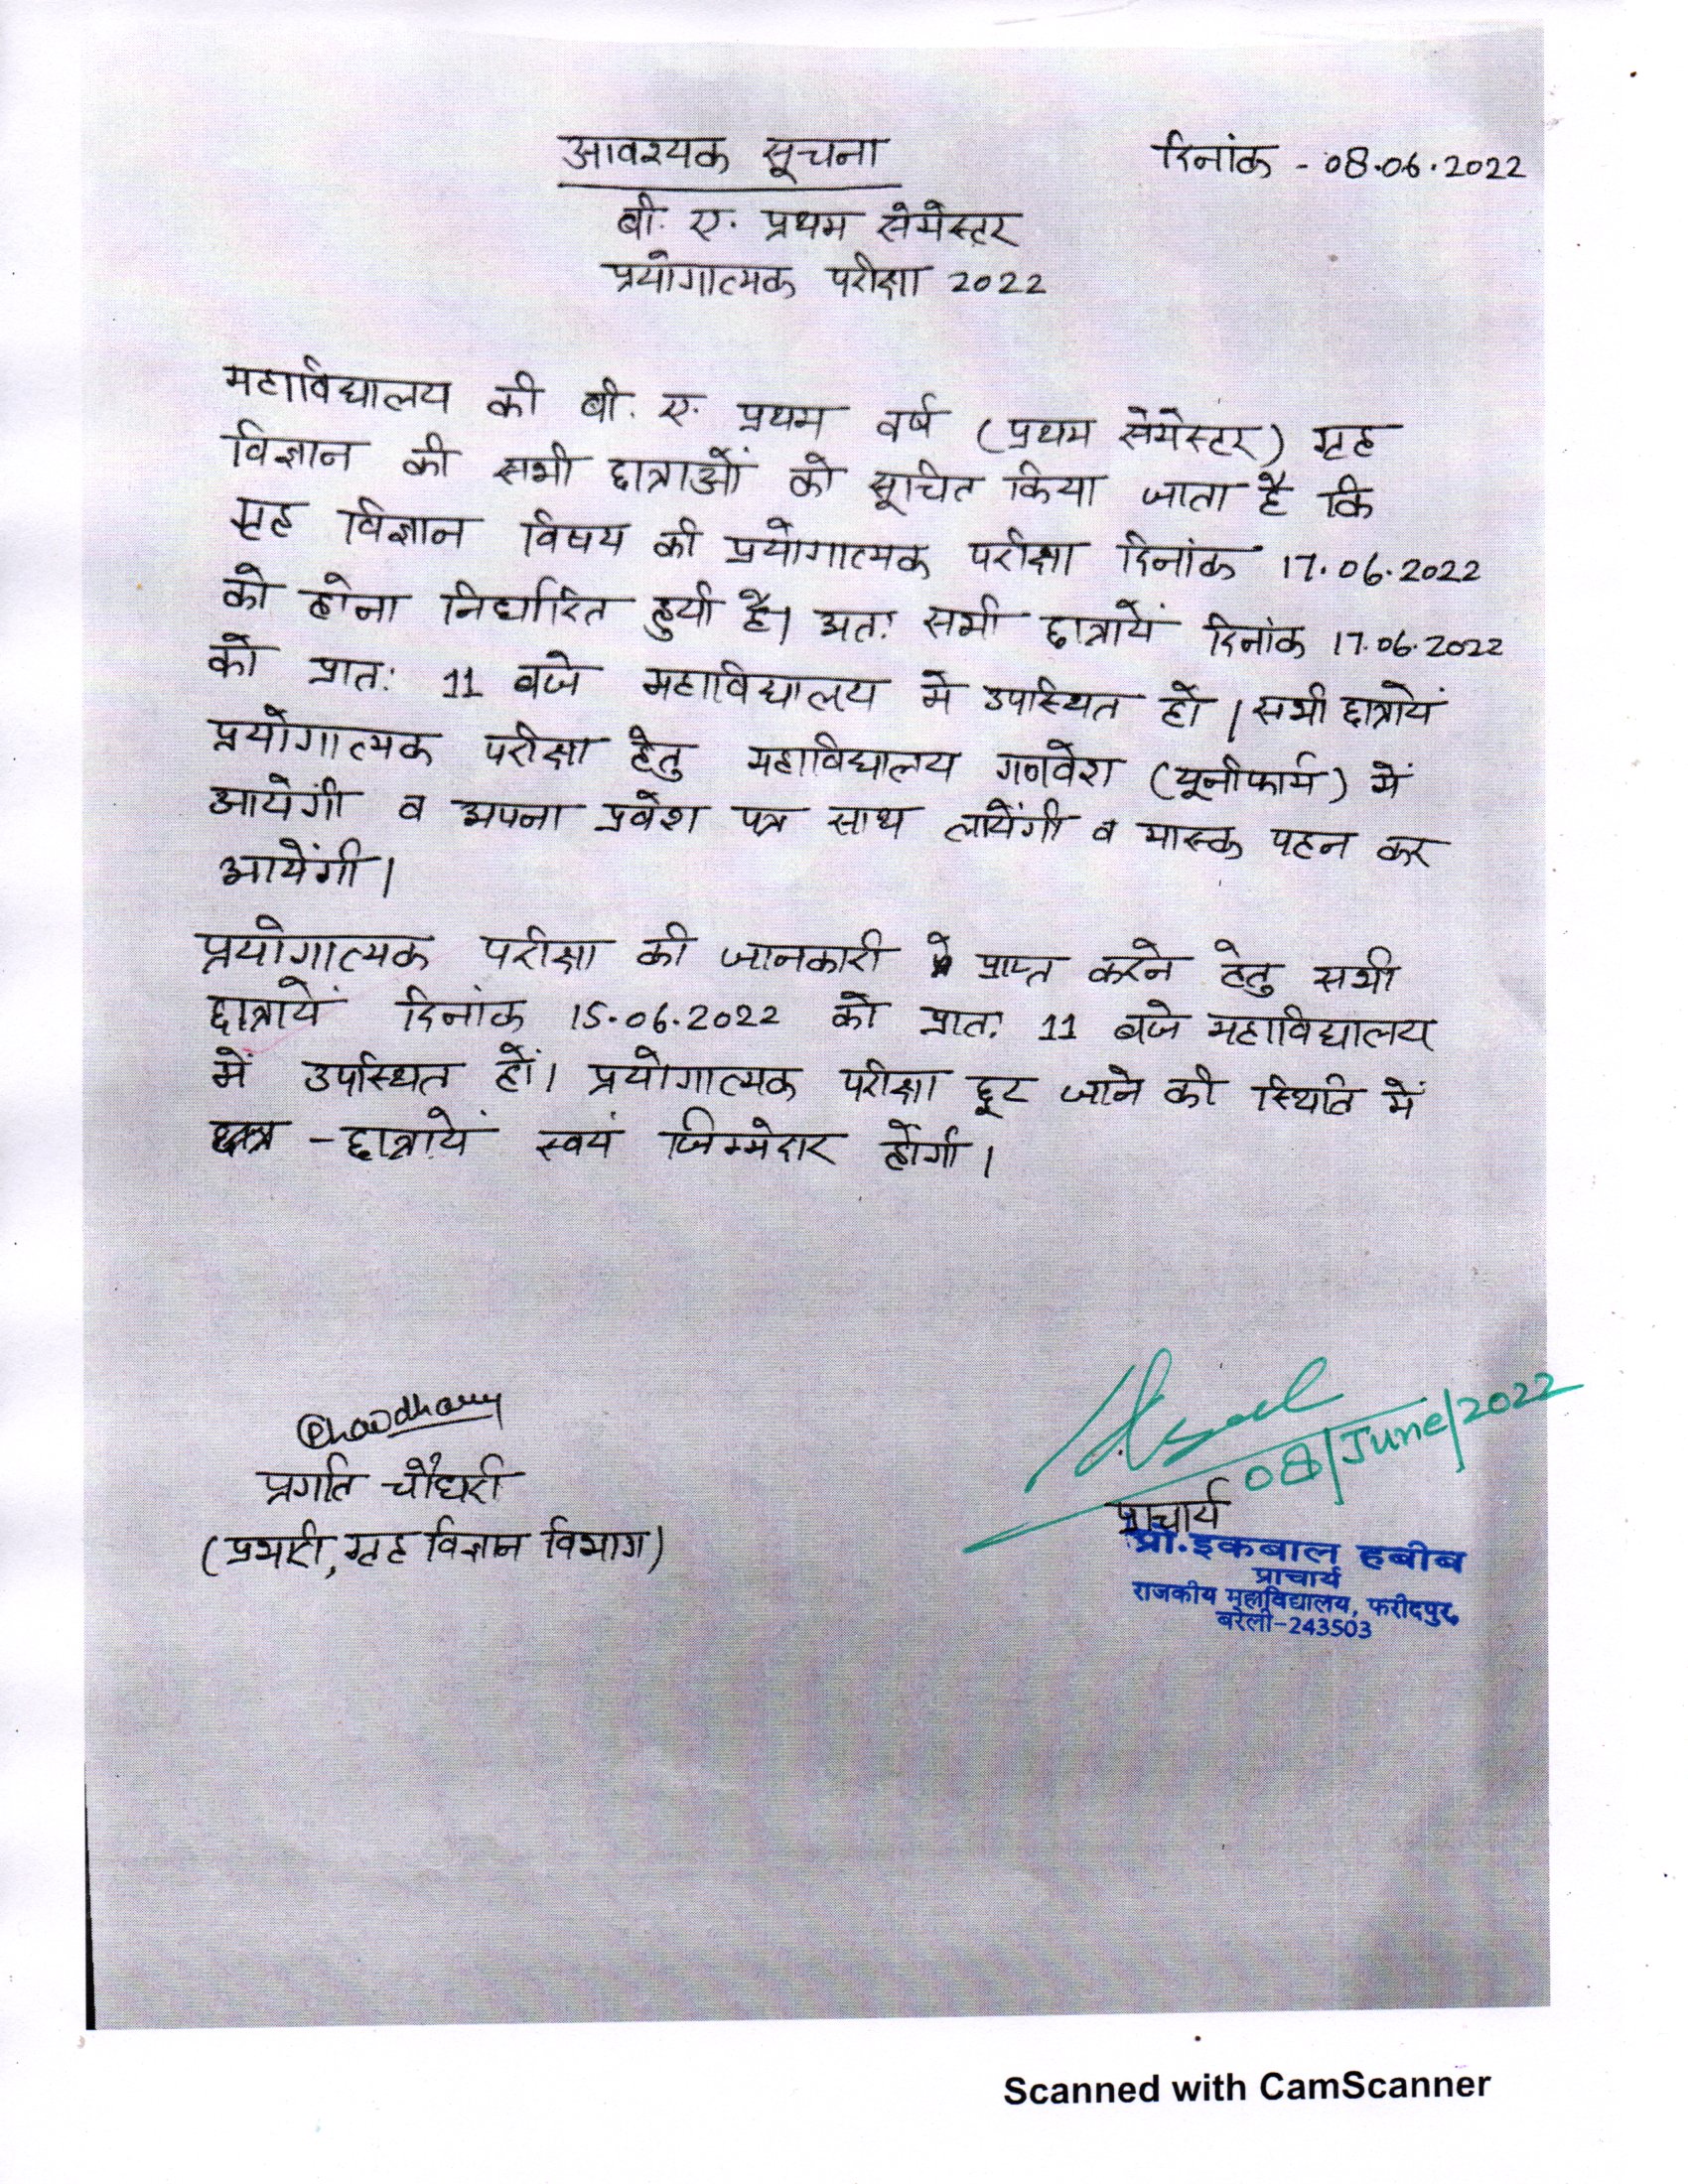 आवश्यक सूचना
दिनांक - 08.06.2022
बी. ए. प्रथम सेमेस्टर
प्रयोगात्मक परीक्षा 2022
महाविद्यालय की बी. ए. प्रथम वर्ष (प्रथम सेमेस्टर) गृह
विज्ञान की सभी छात्राओं को सूचित किया जाता है कि
गृह विज्ञान विषय की प्रयोगात्मक परीक्षा दिनांक 17.06.2022
को होना निर्धारित हुयी है। अत: सभी छात्रायें दिनांक 17.06.2022
को प्रात: 11 बजे महाविद्यालय मे उपस्थित हों। सभी छात्रायें
प्रयोगात्मक परीक्षा हेतु महाविद्यालय गणवेश (यूनीफार्म) में
आयेगी व अपना प्रवेश पत्र साथ लायेंगी व मास्क पहन कर
आयेंगी।
प्रयोगात्मक परीक्षा की जानकारी प्राप्त करने हेतु सभी
छात्रायें दिनांक 15.06.2022 को प्रात: 11 बजे महाविद्यालय
में उपस्थित हों। प्रयोगात्मक परीक्षा छूट जाने की स्थिति में
छात्र - छात्रायें स्वयं जिम्मेदार होंगी।
Chaudhary
08/June/2022
प्रगति चौधरी
(प्रभारी, गृह विज्ञान विभाग)
प्राचार्य
प्रो.इकबाल हबीब
प्राचार्य
राजकीय महाविद्यालय, फरीदपुर,
बरेली-243503
Scanned with CamScanner